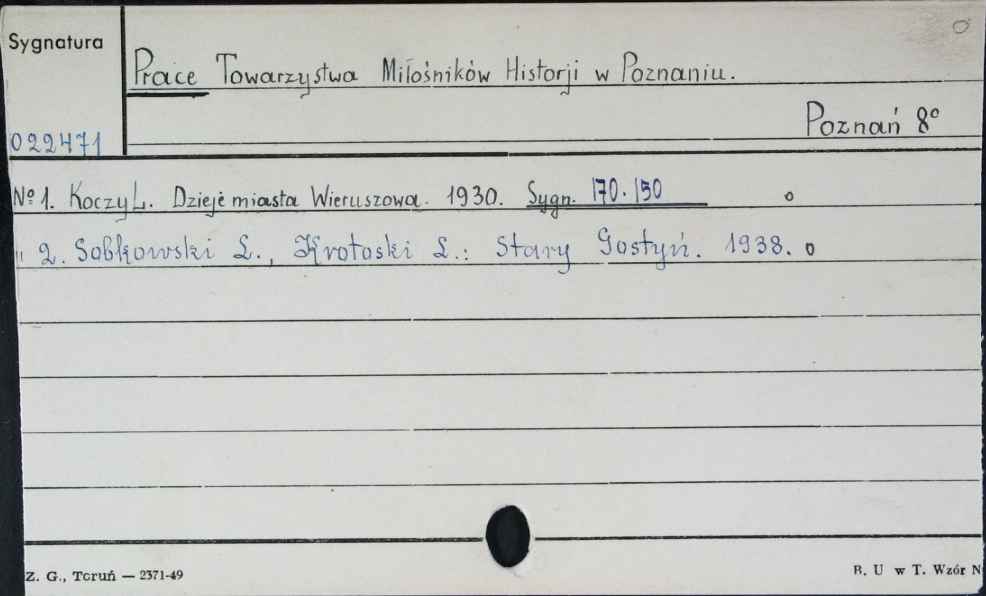 Sygnatura
Prace Towarzystwa Miłośników Historji w Poznaniu.
Poznań 8°
022471
Nº 1. Koczy L. Dzieje miasta Wieruszowa. 1930. Sygn. 170.150 o
" 2. Sobkowski L., Krotoski L.: Stary Gostyń. 1938. o
Z. G., Toruń — 2371-49
B. U w T. Wzór N